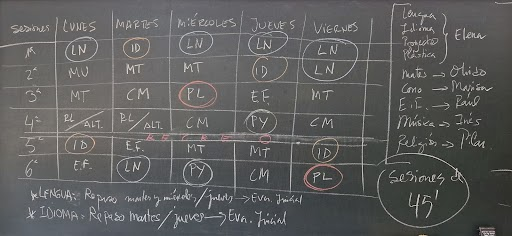 SESIONES LUNES MARTES MIÉRCOLES JUEVES VIERNES
1ª LN ID LN LN LN
2ª MU MT MT ID LN
3ª MT CM PL E.F. MT
4ª RL/ALT. RL/ALT. CM PY CM
RECREO
5ª ID E.F. MT MT ID
6ª E.F. LN PY CM PL
* LENGUA: Repaso martes y miércoles/jueves → Eva. Inicial
* IDIOMA: Repaso martes/jueves → Eva. Inicial
Lengua
Idioma
Proyecto
Plástica
Elena
Mates →
Cono → Marisa
E.F. → Raúl
Música → Inés
Religión → Pilar
Sesiones de
45'